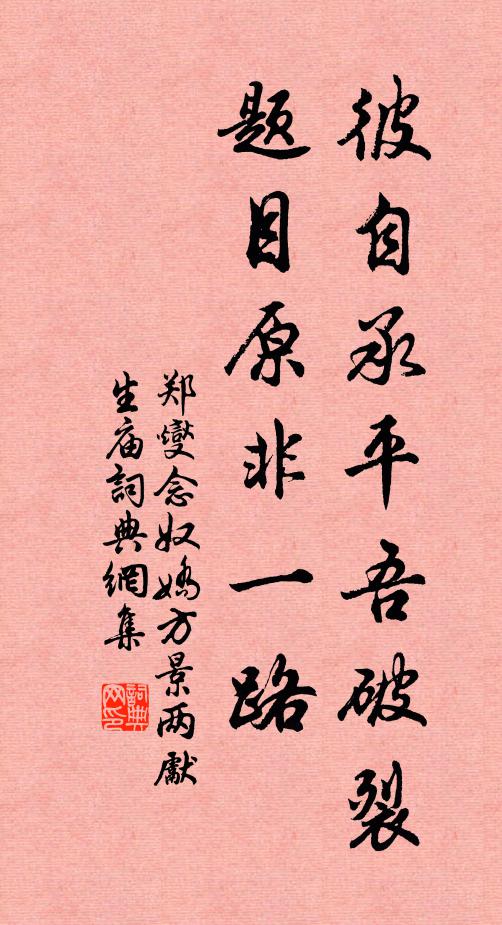 彼自承平吾破裂
题目原非一路
郑燮念奴嬌方景两先
生庙詞典網集
詞典网印